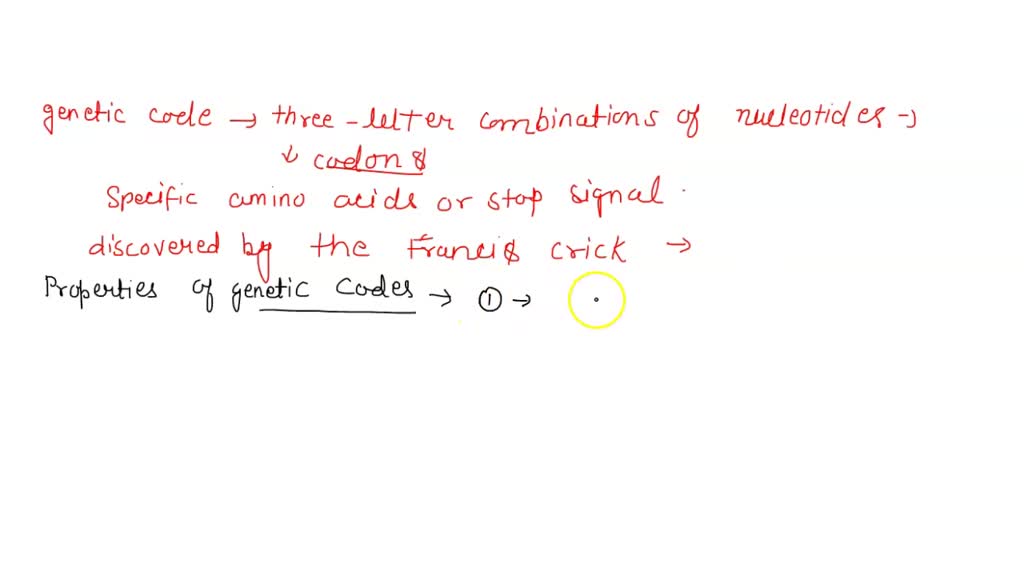 genetic code → three-letter combinations of nucleotides →
↓ codons
Specific amino acids or stop signal.
discovered by the Francis crick →
Properties of genetic codes → ① →